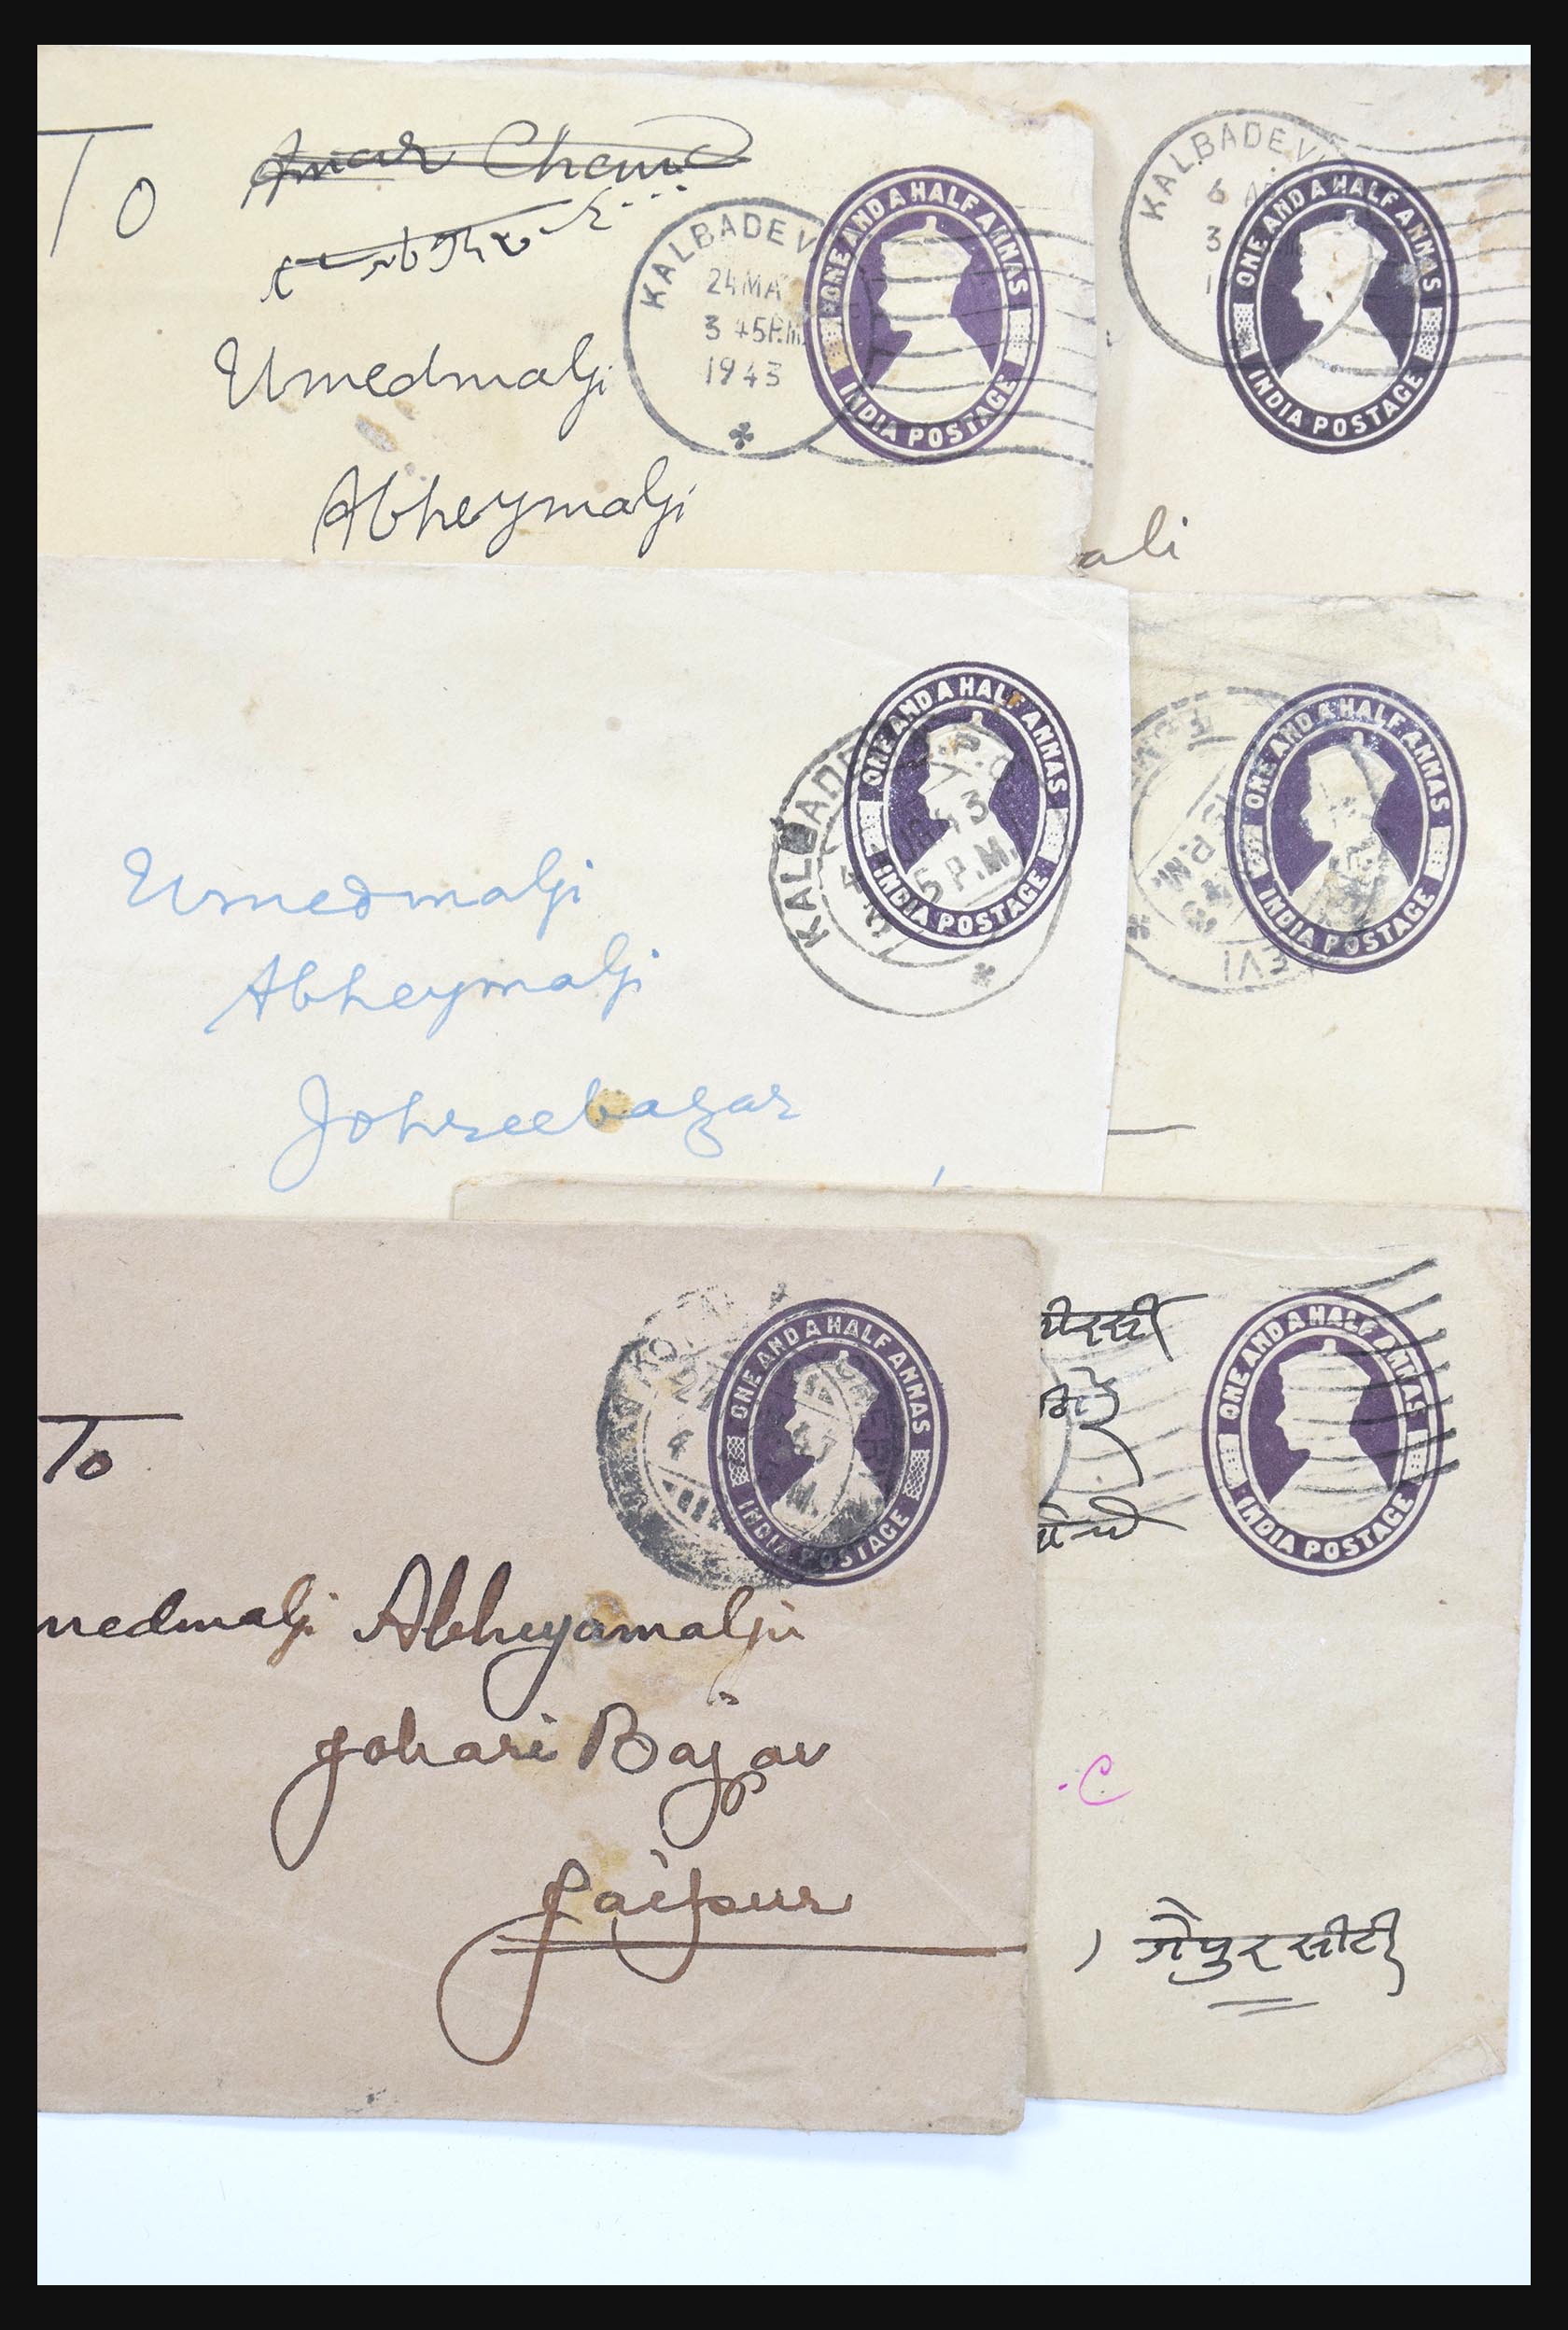 To
Amar Chand
Umedmalji
Abheymalji
KALBADEV
24 MA
3 45 P.M.
1943
ONE AND A HALF ANNAS
INDIA POSTAGE
KALBADEVI
6
3
ONE AND A HALF ANNAS
INDIA POSTAGE
ali
Umedmalji
Abheymalji
Johreebazar
5 P.M.
ONE AND A HALF ANNAS
INDIA POSTAGE
P.M.
EVI
ONE AND A HALF ANNAS
INDIA POSTAGE
To
medmalji Abheyamalji
Johari Bajar
Jaipur
ONE AND A HALF ANNAS
INDIA POSTAGE
ONE AND A HALF ANNAS
INDIA POSTAGE
C
जैपुर सीटी